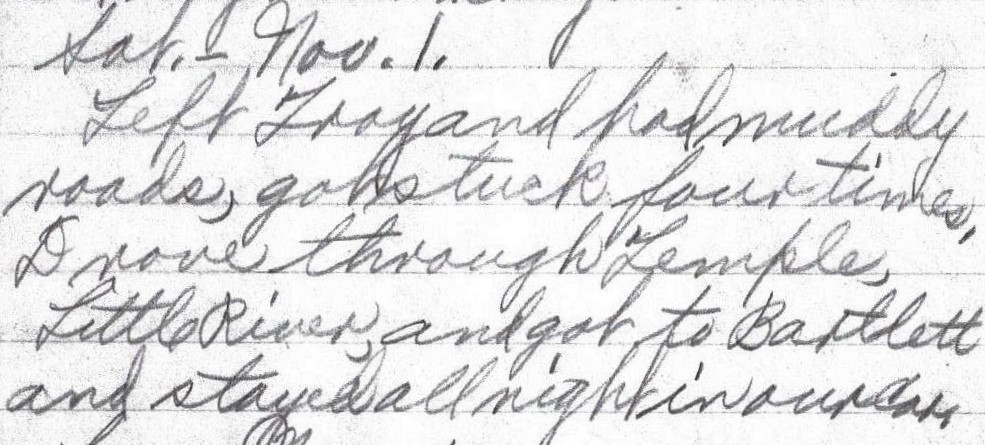 Sat. - Nov. 1.
Left Troy and had muddy
roads, got stuck four times,
Drove through Temple,
Little River, and got to Bartlett
and stayed all night in our car.